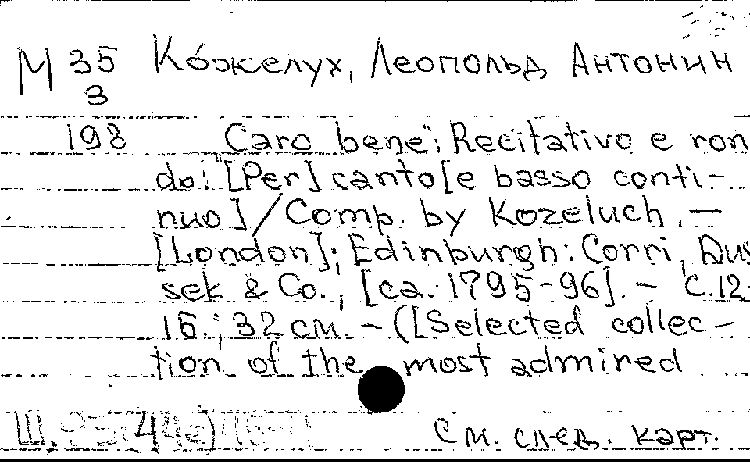 М 35 Кожелух, Леопольд Антонин
3
198 Caro bene: Recitativo e ron
do: [Per] canto [e basso conti-
nuo] / Comp. by Kozeluch. —
[London]; Edinburgh: Corri, Dus
sek & Co., [ca. 1795-96]. — С. 12-
16.; 32 см. — ([Selected collec-
tion of the most admired
См. след. карт.